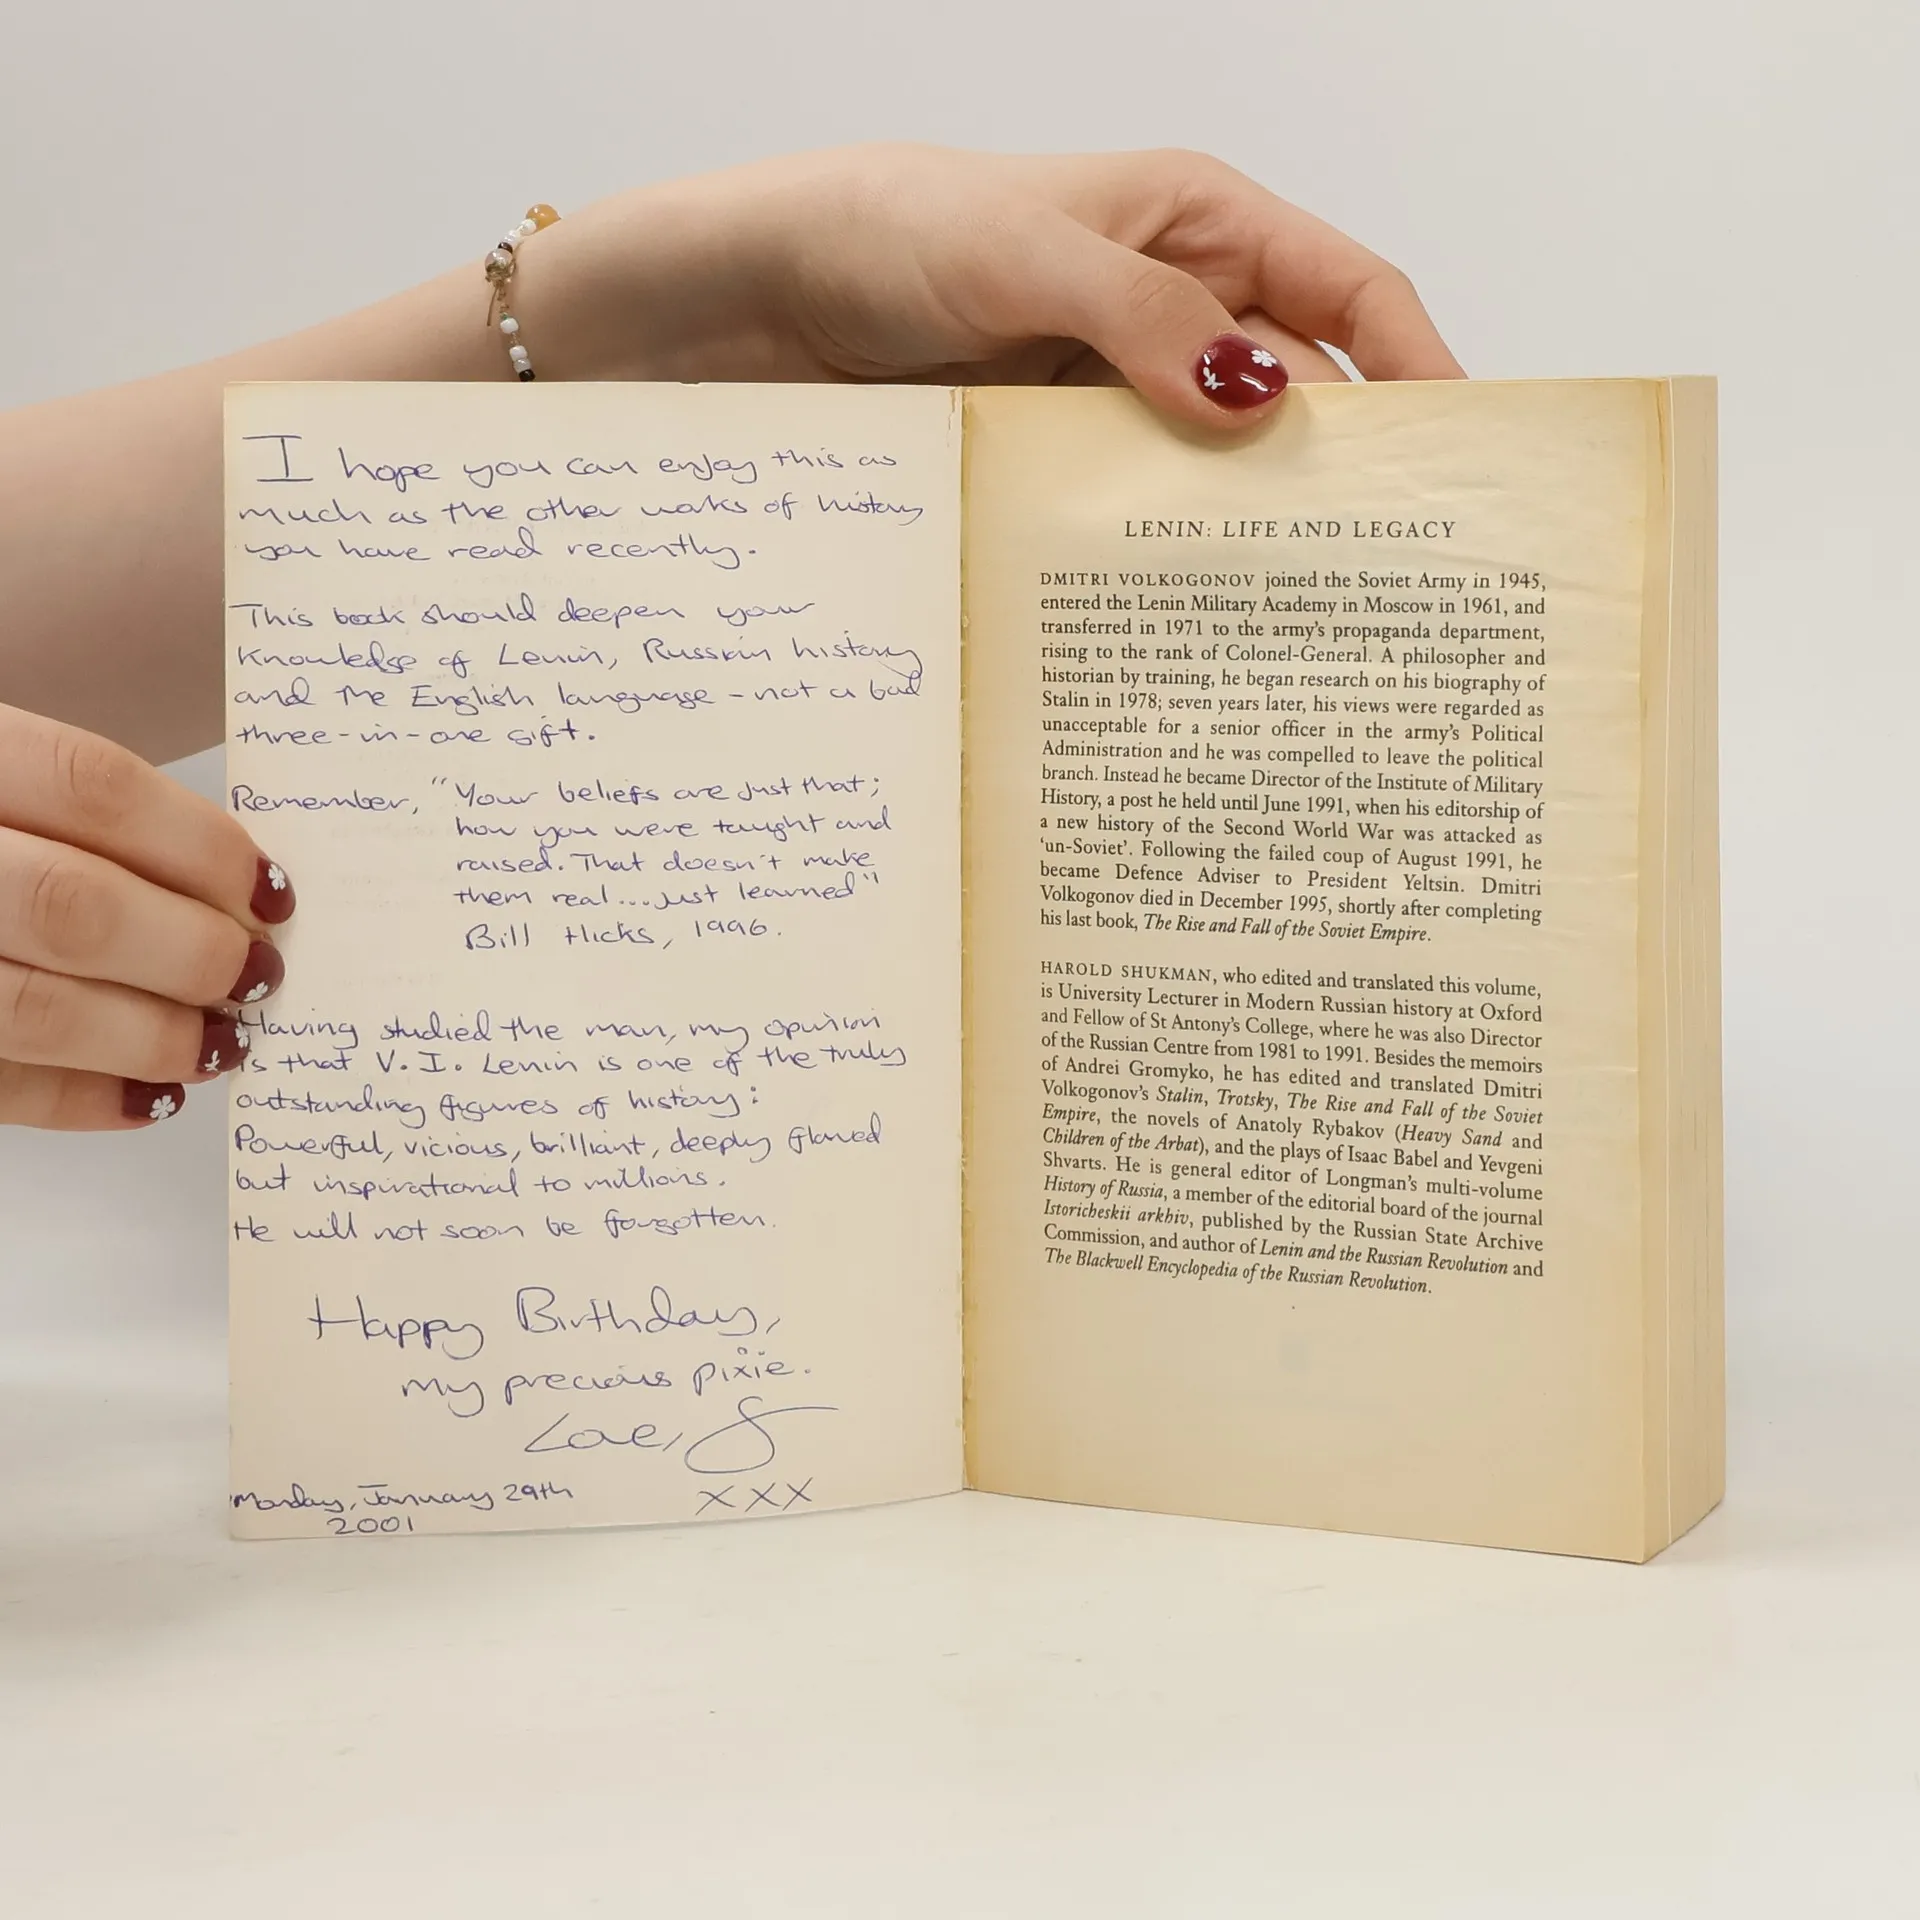 I hope you can enjoy this as
much as the other works of history
you have read recently.
This book should deepen your
knowledge of Lenin, Russian history
and the English language - not a bad
three-in-one gift.
Remember, "Your beliefs are just that;
how you were taught and
raised. That doesn't make
them real...just learned"
Bill Hicks, 1996.
Having studied the man, my opinion
is that V. I. Lenin is one of the truly
outstanding figures of history:
Powerful, vicious, brilliant, deeply flawed
but inspirational to millions.
He will not soon be forgotten.
Happy Birthday,
my precious pixie.
Love,
XXX
Monday, January 29th
2001
LENIN: LIFE AND LEGACY
DMITRI VOLKOGONOV joined the Soviet Army in 1945,
entered the Lenin Military Academy in Moscow in 1961, and
transferred in 1971 to the army's propaganda department,
rising to the rank of Colonel-General. A philosopher and
historian by training, he began research on his biography of
Stalin in 1978; seven years later, his views were regarded as
unacceptable for a senior officer in the army's Political
Administration and he was compelled to leave the political
branch. Instead he became Director of the Institute of Military
History, a post he held until June 1991, when his editorship of
a new history of the Second World War was attacked as
'un-Soviet'. Following the failed coup of August 1991, he
became Defence Adviser to President Yeltsin. Dmitri
Volkogonov died in December 1995, shortly after completing
his last book, The Rise and Fall of the Soviet Empire.
HAROLD SHUKMAN, who edited and translated this volume,
is University Lecturer in Modern Russian history at Oxford
and Fellow of St Antony's College, where he was also Director
of the Russian Centre from 1981 to 1991. Besides the memoirs
of Andrei Gromyko, he has edited and translated Dmitri
Volkogonov's Stalin, Trotsky, The Rise and Fall of the Soviet
Empire, the novels of Anatoly Rybakov (Heavy Sand and
Children of the Arbat), and the plays of Isaac Babel and Yevgeni
Shvarts. He is general editor of Longman's multi-volume
History of Russia, a member of the editorial board of the journal
Istoricheskii arkhiv, published by the Russian State Archive
Commission, and author of Lenin and the Russian Revolution and
The Blackwell Encyclopedia of the Russian Revolution.